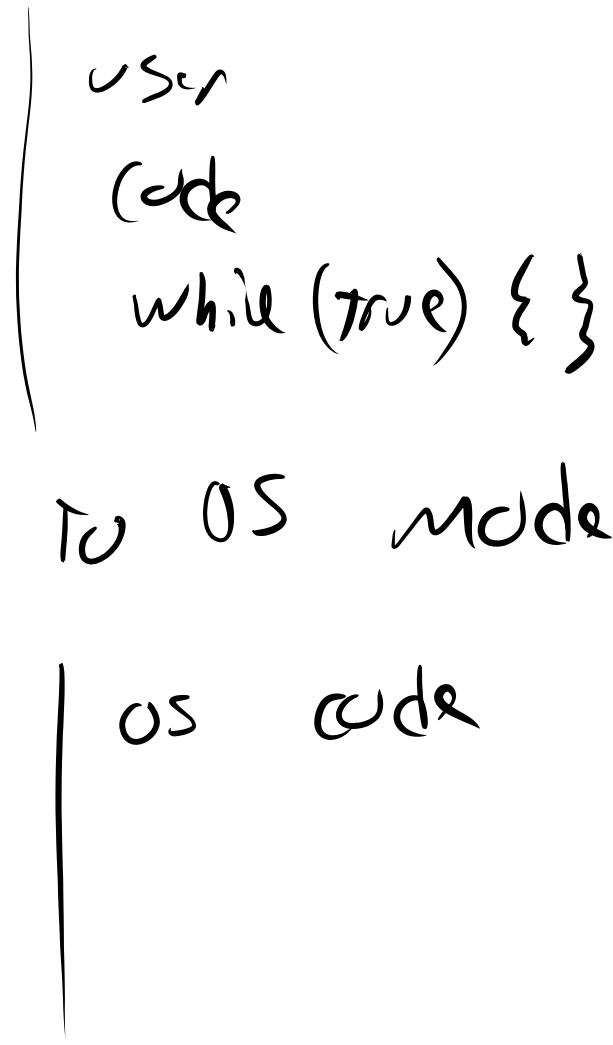 user
code
while (true) { }
To OS mode
OS code